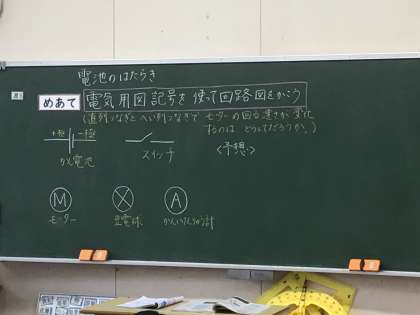 電池のはたらき
めあて
電気用図記号を使って回路図をかこう
(直列つなぎとへい列つなぎで モーターの回る速さが変化
するのは どうしてだろうか。)
+極 -極
かん電池
スイッチ
<予想>
M
モーター
豆電球
A
かんいけんりゅう計